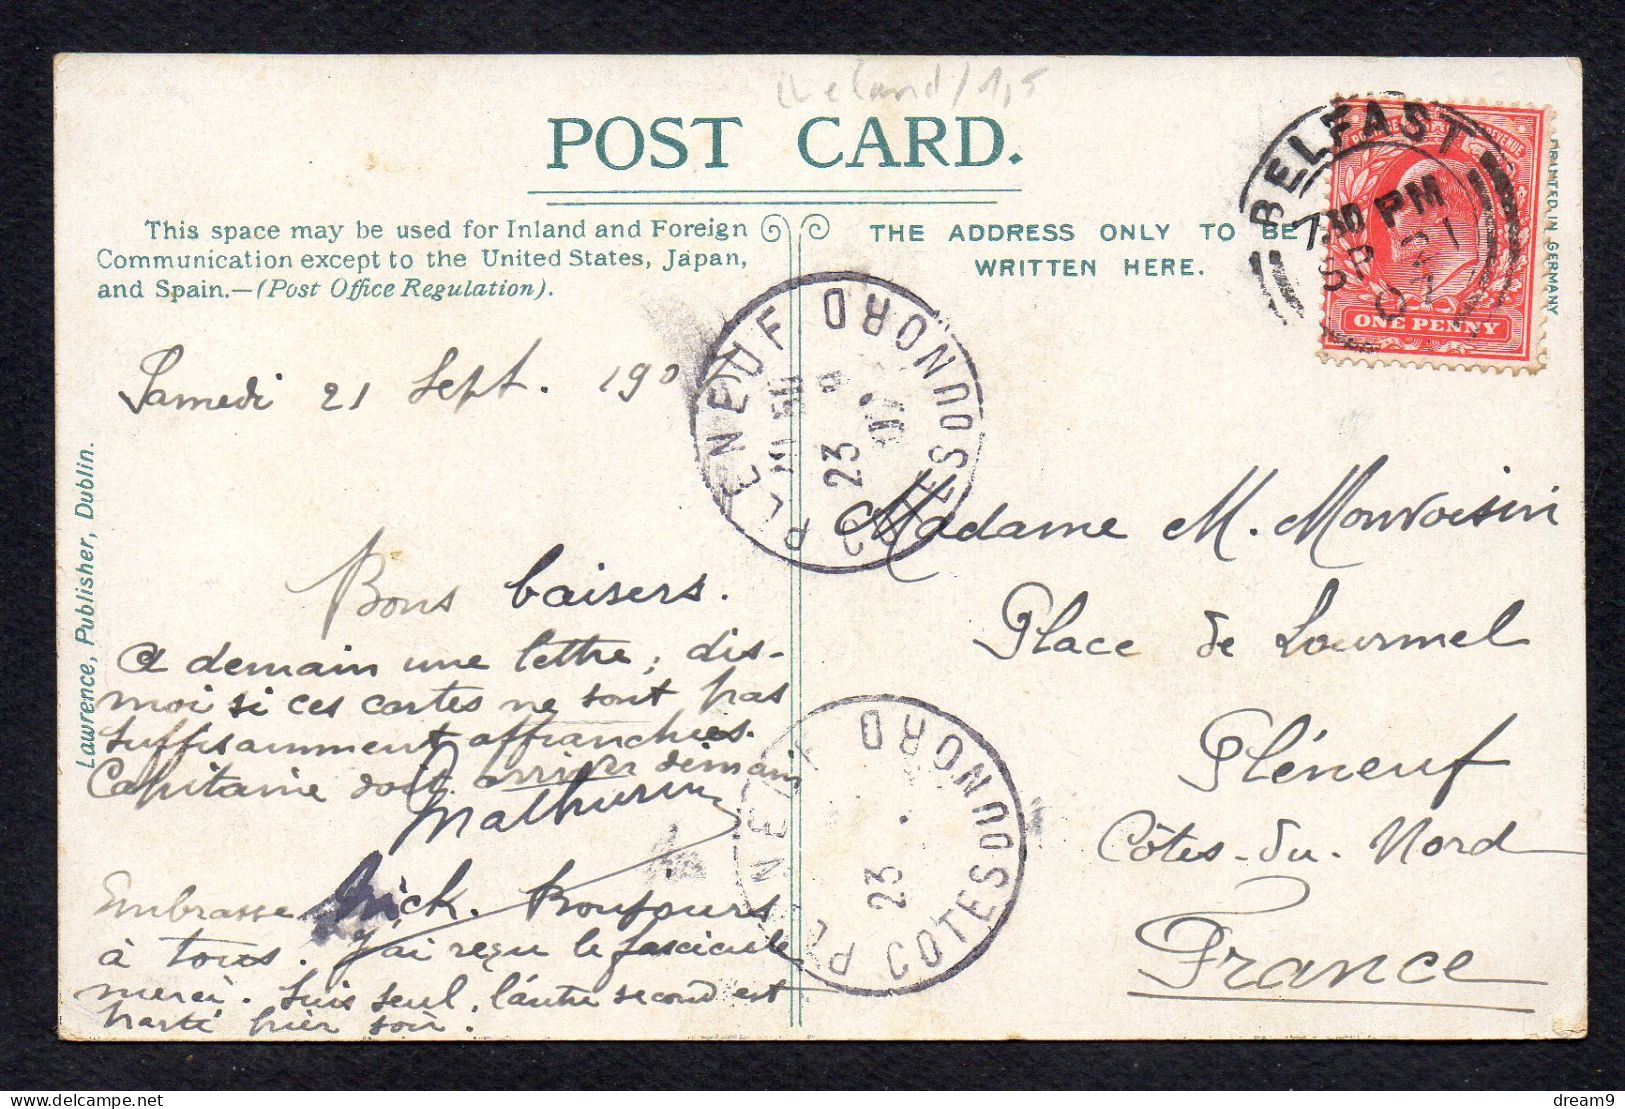 Ireland / 1,5
POST CARD.
This space may be used for Inland and Foreign
Communication except to the United States, Japan,
and Spain.—(Post Office Regulation).
THE ADDRESS ONLY TO BE
WRITTEN HERE.
PRINTED IN GERMANY
BELFAST
7.30 PM
SP 21
07
POSTAGE & REVENUE
ONE PENNY
PLENEUF
COTES DU NORD
23
Lawrence, Publisher, Dublin.
Samedi 21 Sept. 190
Bons baisers.
A demain une lettre, dis-
moi si ces cartes ne sont pas
suffisamment affranchies.
Capitaine doit arriver demain
Mathurin
Embrasse Mick. Bonjours
à tous. J'ai reçu le fascicule
merci. Suis seul, l'autre second est
parti hier soir.
Madame M. Monvoisin
Place de Lourmel
Pléneuf
Côtes-du-Nord
France
PLENEUF
COTES DU NORD
23
dream9